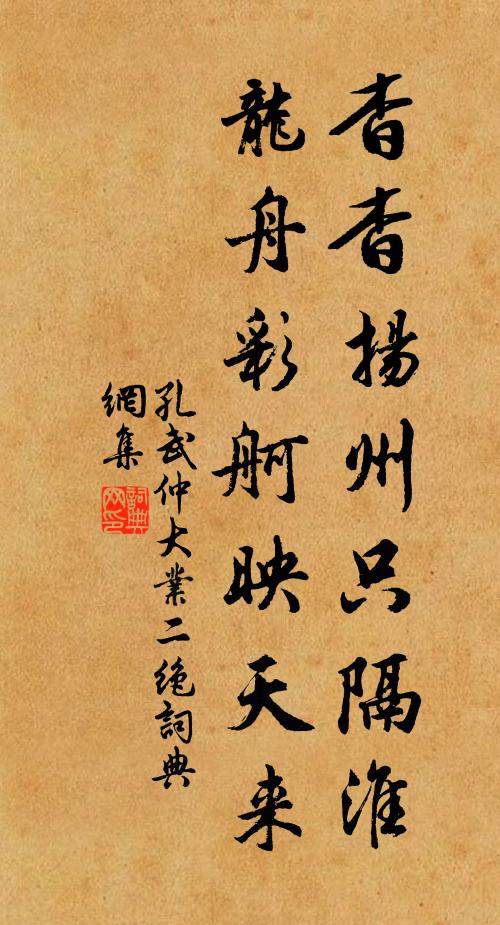 杳杳揚州只隔淮
龍舟彩舸映天来
孔武仲大業二绝詞典
網集
詞典
网印